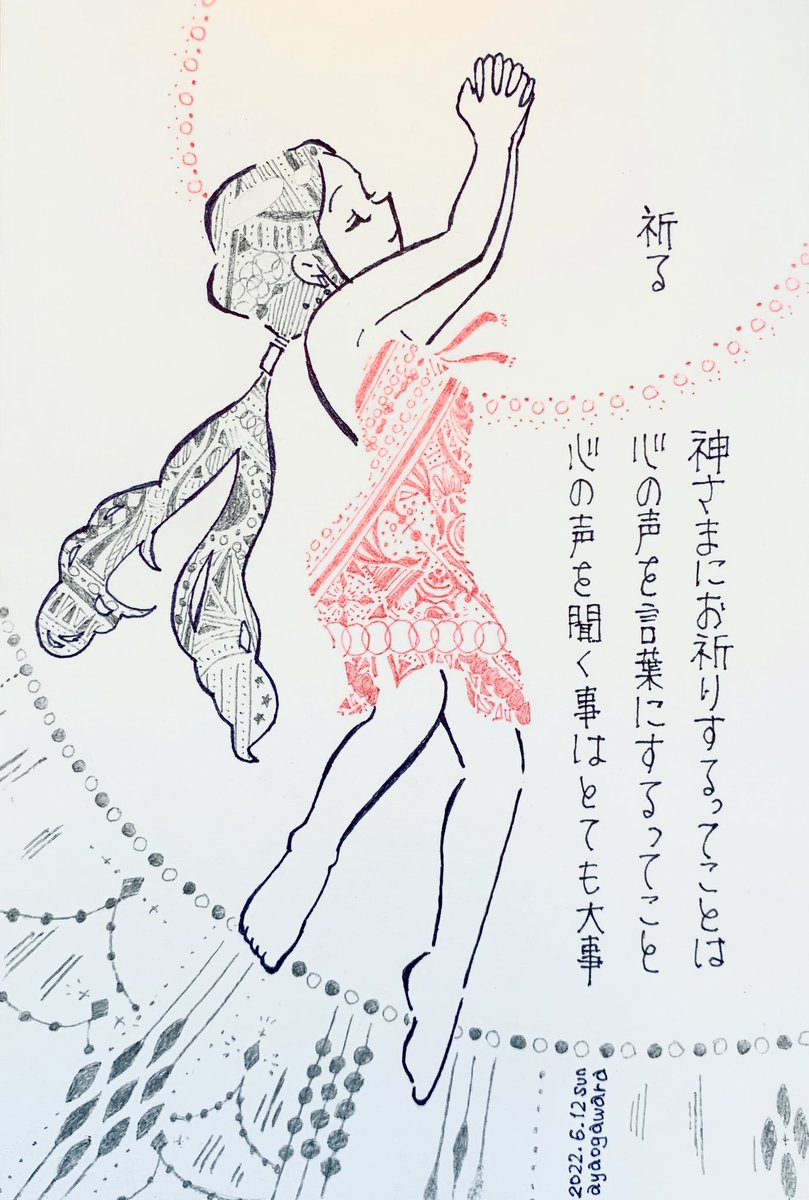 祈る
神さまにお祈りするってことは
心の声を言葉にするってこと
心の声を聞く事はとても大事
2022.6.12 sun
ayaogawara